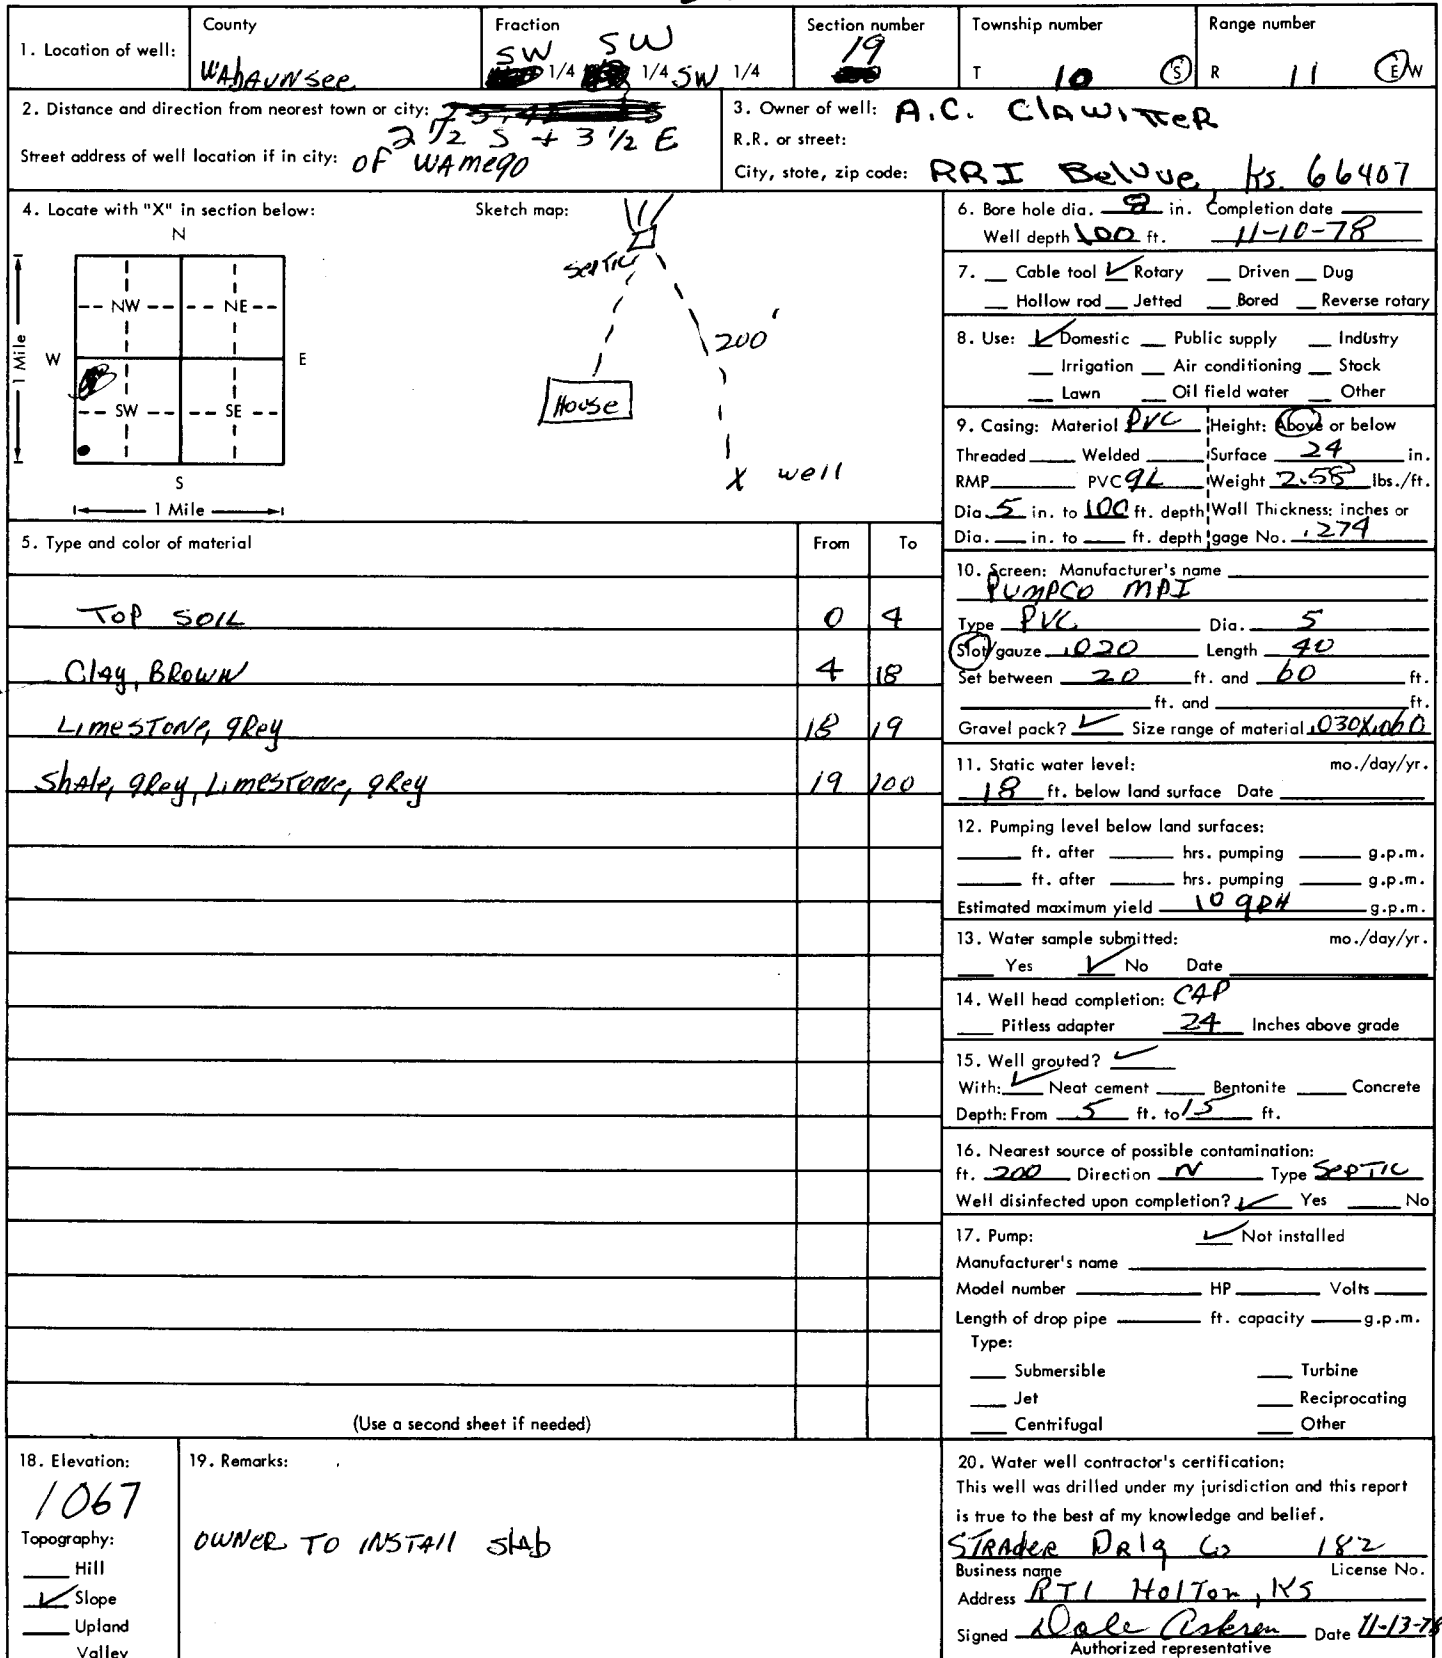 1. Location of well:
County
WAbAUNSee
Fraction
SW 1/4 SW 1/4 SW 1/4
Section number
19
Township number
T 10 S
Range number
R 11 E W
2. Distance and direction from nearest town or city:
2 1/2 S + 3 1/2 E
Street address of well location if in city: OF WAMego
3. Owner of well: A.C. ClAWITTeR
R.R. or street:
City, state, zip code: RR1 BelVue, Ks. 66407
4. Locate with "X" in section below:
N
NW NE
W E
SW SE
S
1 Mile
1 Mile
Sketch map:
septic
200'
House
X well
5. Type and color of material From To
TOP SOIL 0 4
Clay, BROWN 4 18
LimeSTONe, gRey 18 19
ShAle, gRey, LimeSTONe, gRey 19 100
(Use a second sheet if needed)
6. Bore hole dia. 8 in. Completion date
Well depth 100 ft. 11-10-78
7. Cable tool ✓ Rotary Driven Dug
Hollow rod Jetted Bored Reverse rotary
8. Use: ✓ Domestic Public supply Industry
Irrigation Air conditioning Stock
Lawn Oil field water Other
9. Casing: Material PVC Height: Above or below
Threaded Welded Surface 24 in.
RMP PVC gL Weight 2.58 lbs./ft.
Dia. 5 in. to 100 ft. depth Wall Thickness: inches or
Dia. in. to ft. depth gage No. .274
10. Screen: Manufacturer's name
PUMPCO MPI
Type PVC Dia. 5
Slot/gauze .020 Length 40
Set between 20 ft. and 60 ft.
ft. and ft.
Gravel pack? ✓ Size range of material .030X.060
11. Static water level: mo./day/yr.
18 ft. below land surface Date
12. Pumping level below land surfaces:
ft. after hrs. pumping g.p.m.
ft. after hrs. pumping g.p.m.
Estimated maximum yield 10 gPH g.p.m.
13. Water sample submitted: mo./day/yr.
Yes ✓ No Date
14. Well head completion: CAP
Pitless adapter 24 Inches above grade
15. Well grouted? ✓
With: ✓ Neat cement Bentonite Concrete
Depth: From 5 ft. to 15 ft.
16. Nearest source of possible contamination:
ft. 200 Direction N Type SepTIC
Well disinfected upon completion? ✓ Yes No
17. Pump: ✓ Not installed
Manufacturer's name
Model number HP Volts
Length of drop pipe ft. capacity g.p.m.
Type:
Submersible Turbine
Jet Reciprocating
Centrifugal Other
18. Elevation:
1067
Topography:
Hill
✓ Slope
Upland
Valley
19. Remarks:
OWNER TO INSTAll SlAb
20. Water well contractor's certification:
This well was drilled under my jurisdiction and this report
is true to the best of my knowledge and belief.
STRAdeR DRlg Co 182
Business name License No.
Address RT1 HolTon, KS
Signed Dale Askren Date 11-13-78
Authorized representative